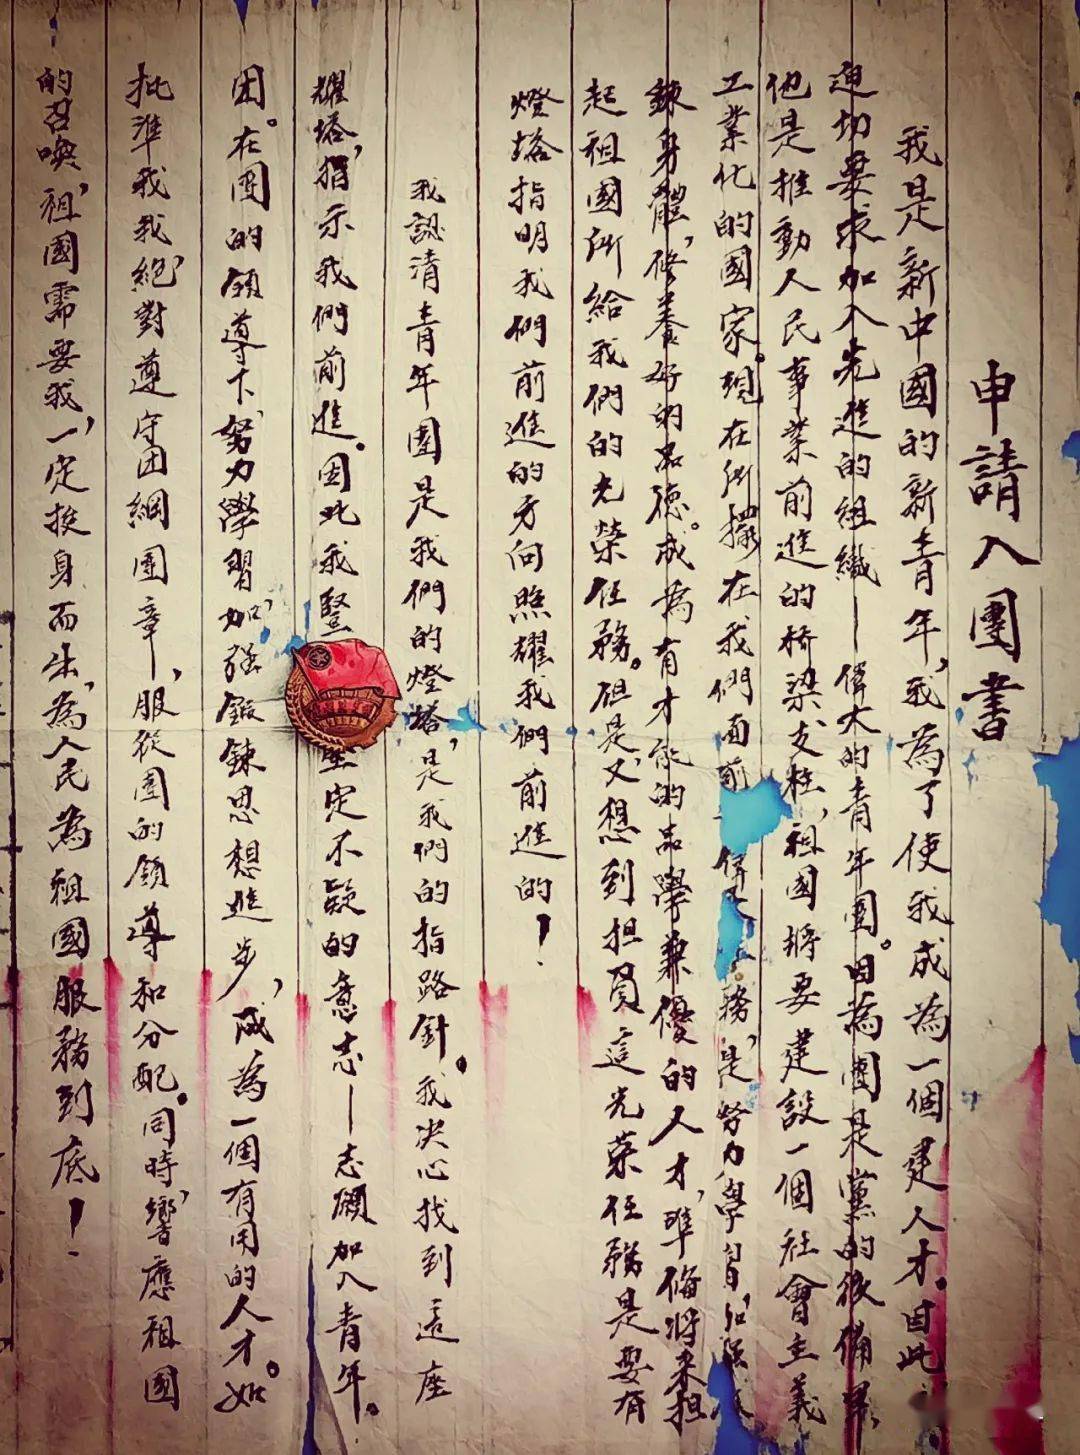 申請入團書
我是新中國的新青年,我為了使我成為一個建人才。因此,
迫切要求加入先進的組織——偉大的青年團。因為團是黨的後備軍,
他是推動人民事業前進的桥梁支柱,祖國將要建設一個社會主義
工業化的國家。現在所擺在我們面前 務,是努力學習,加強
鍊身體,修養好的品德。成為有才能的品學兼優的人才,準備將来担
起祖國所給我們的光榮任務。但是又想到担負這光荣任務是要有
燈塔指明我們前進的方向照耀我們前進的!
我認清青年團是我們的燈塔,是我們的指路針。我决心找到這座
耀塔,指示我們前進。因此我堅定不疑的意志——志願加入青年。
团。在團的領導下,努力學習,加强鍛鍊思想進步,成為一個有用的人才。如
批準我我絕對遵守团綱團章,服從團的領導和分配。同時,響應祖國
的召喚,祖國需要我,一定挺身而出,為人民為祖國服務到底!